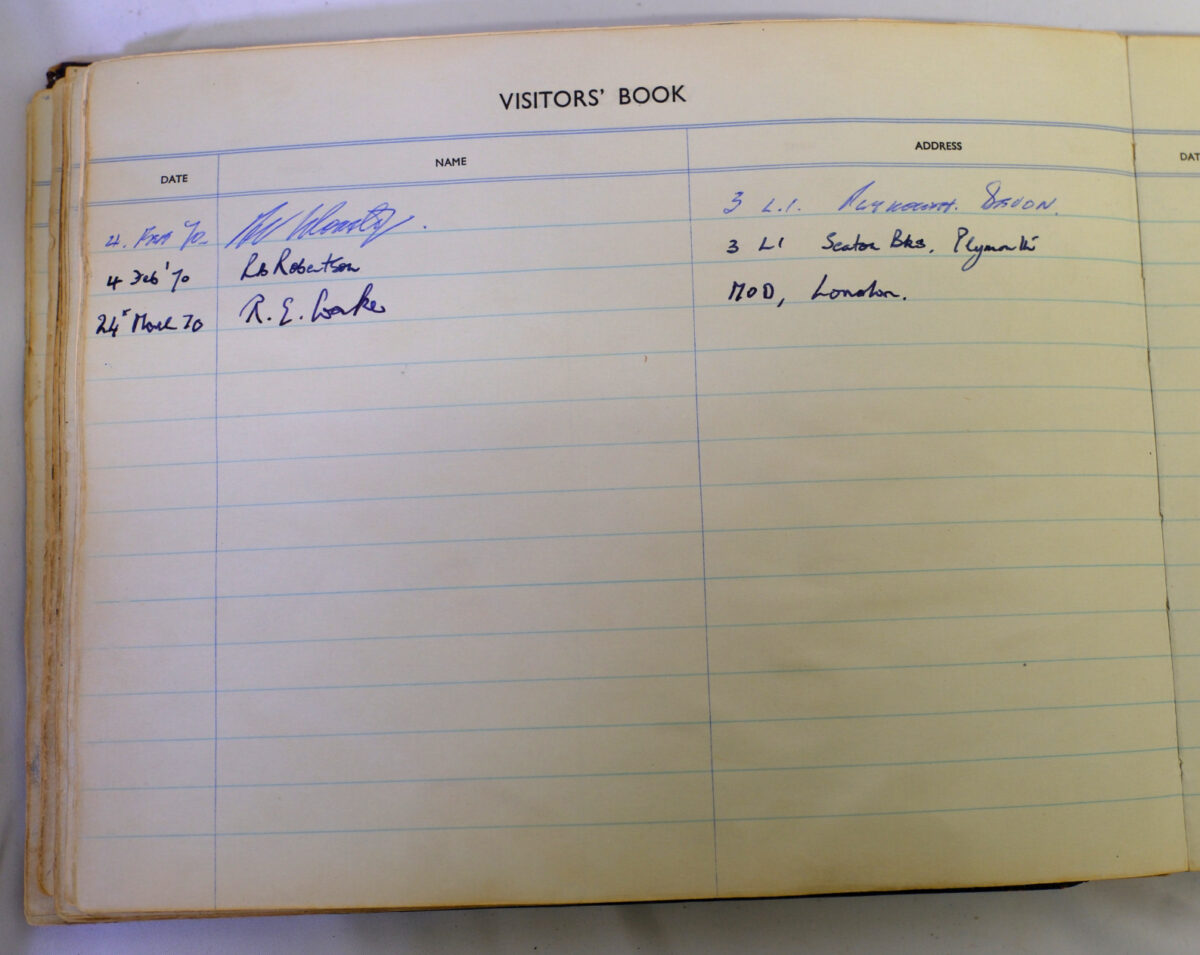 VISITORS' BOOK
DATE NAME ADDRESS DAT
4. FEB 70 3 L.I. PLYMOUTH. DEVON.
4 Feb '70 Robertson 3 LI Seaton Bks, Plymouth
24 March 70 R. E. MOD, London.